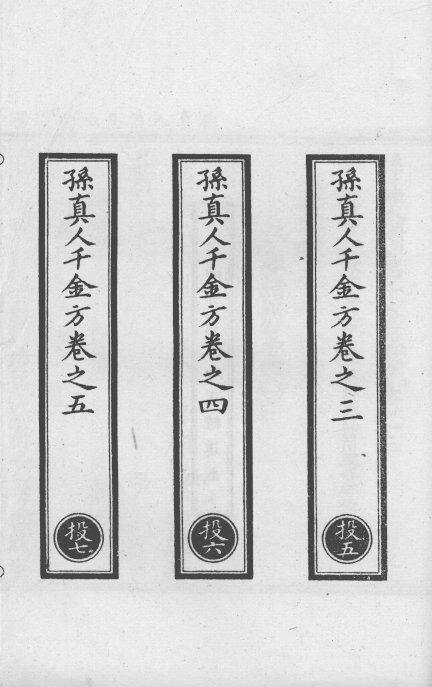 孫真人千金方卷之三
投五
孫真人千金方卷之四
投六
孫真人千金方卷之五
投七